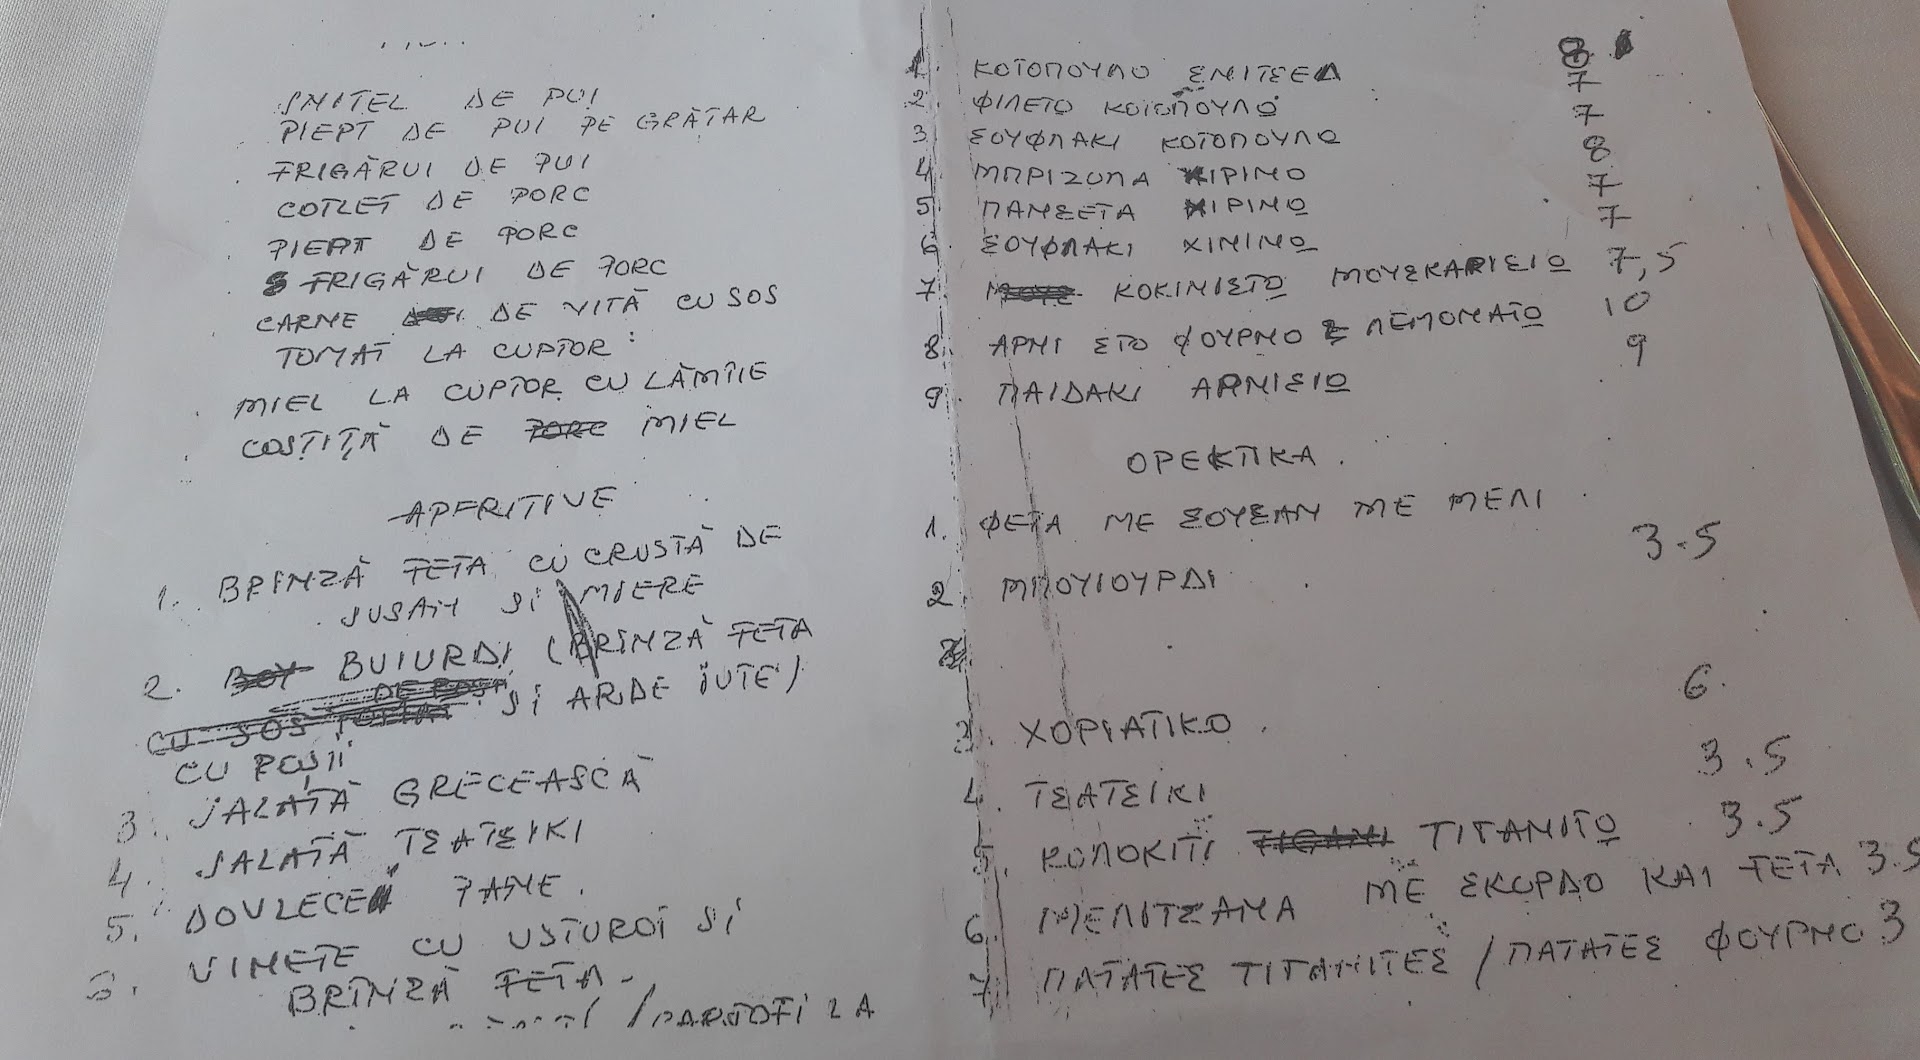 ȘNIȚEL DE PUI
PIEPT DE PUI PE GRĂTAR
FRIGĂRUI DE PUI
COTLET DE PORC
PIEPT DE PORC
FRIGĂRUI DE PORC
CARNE DE VITĂ CU SOS
TOMAT LA CUPTOR
MIEL LA CUPTOR CU LĂMÎIE
COSTIȚĂ DE MIEL
APERITIVE
1. BRÎNZĂ FETA CU CRUSTĂ DE
SUSAN ȘI MIERE
2. BUIURDI (BRÎNZĂ FETA
ȘI ARDE IUTE)
CU ROȘII
3. SALATĂ GRECEASCĂ
4. SALATĂ TΣATΣIKI
5. DOVLECEI PANE.
6. VINETE CU USTUROI ȘI
BRÎNZĂ FETA
/PARTOFI LA
1. ΚΟΤΟΠΟΥΛΟ ΣΝΙΤΣΕΛ 8
2. ΦΙΛΕΤΟ ΚΟΤΟΠΟΥΛΟ 7
3. ΣΟΥΦΛΑΚΙ ΚΟΤΟΠΟΥΛΟ 7
4. ΜΠΡΙΖΟΛΑ ΧΙΡΙΝΟ 8
5. ΠΑΝΣΕΤΑ ΧΙΡΙΝΟ 7
6. ΣΟΥΦΛΑΚΙ ΧΙΝΙΝΟ 7
7. ΚΟΚΙΝΙΣΤΟ ΜΟΥΣΚΑΡΙΣΙΟ 7,5
8. ΑΡΝΙ ΣΤΟ ΦΟΥΡΝΟ ΛΕΜΟΝΑΤΟ 10
9. ΠΑΙΔΑΚΙ ΑΡΝΙΣΙΟ 9
ΟΡΕΚΤΙΚΑ.
1. ΦΕΤΑ ΜΕ ΣΟΥΣΑΝ ΜΕ ΜΕΛΙ
2. ΜΠΟΥΙΟΥΡΔΙ 3.5
3. ΧΟΡΙΑΤΙΚΟ. 6.
4. ΤΣΑΤΣΙΚΙ 3.5
5. ΚΟΛΟΚΙΤΙ ΤΙΓΑΝΙΤΟ 3.5
6. ΜΕΛΙΤΖΑΝΑ ΜΕ ΣΚΟΡΔΟ ΚΑΙ FETA 3.5
7. ΠΑΤΑΤΕΣ ΤΙΓΑΝΙΤΕΣ / ΠΑΤΑΤΕΣ ΦΟΥΡΝΟ 3